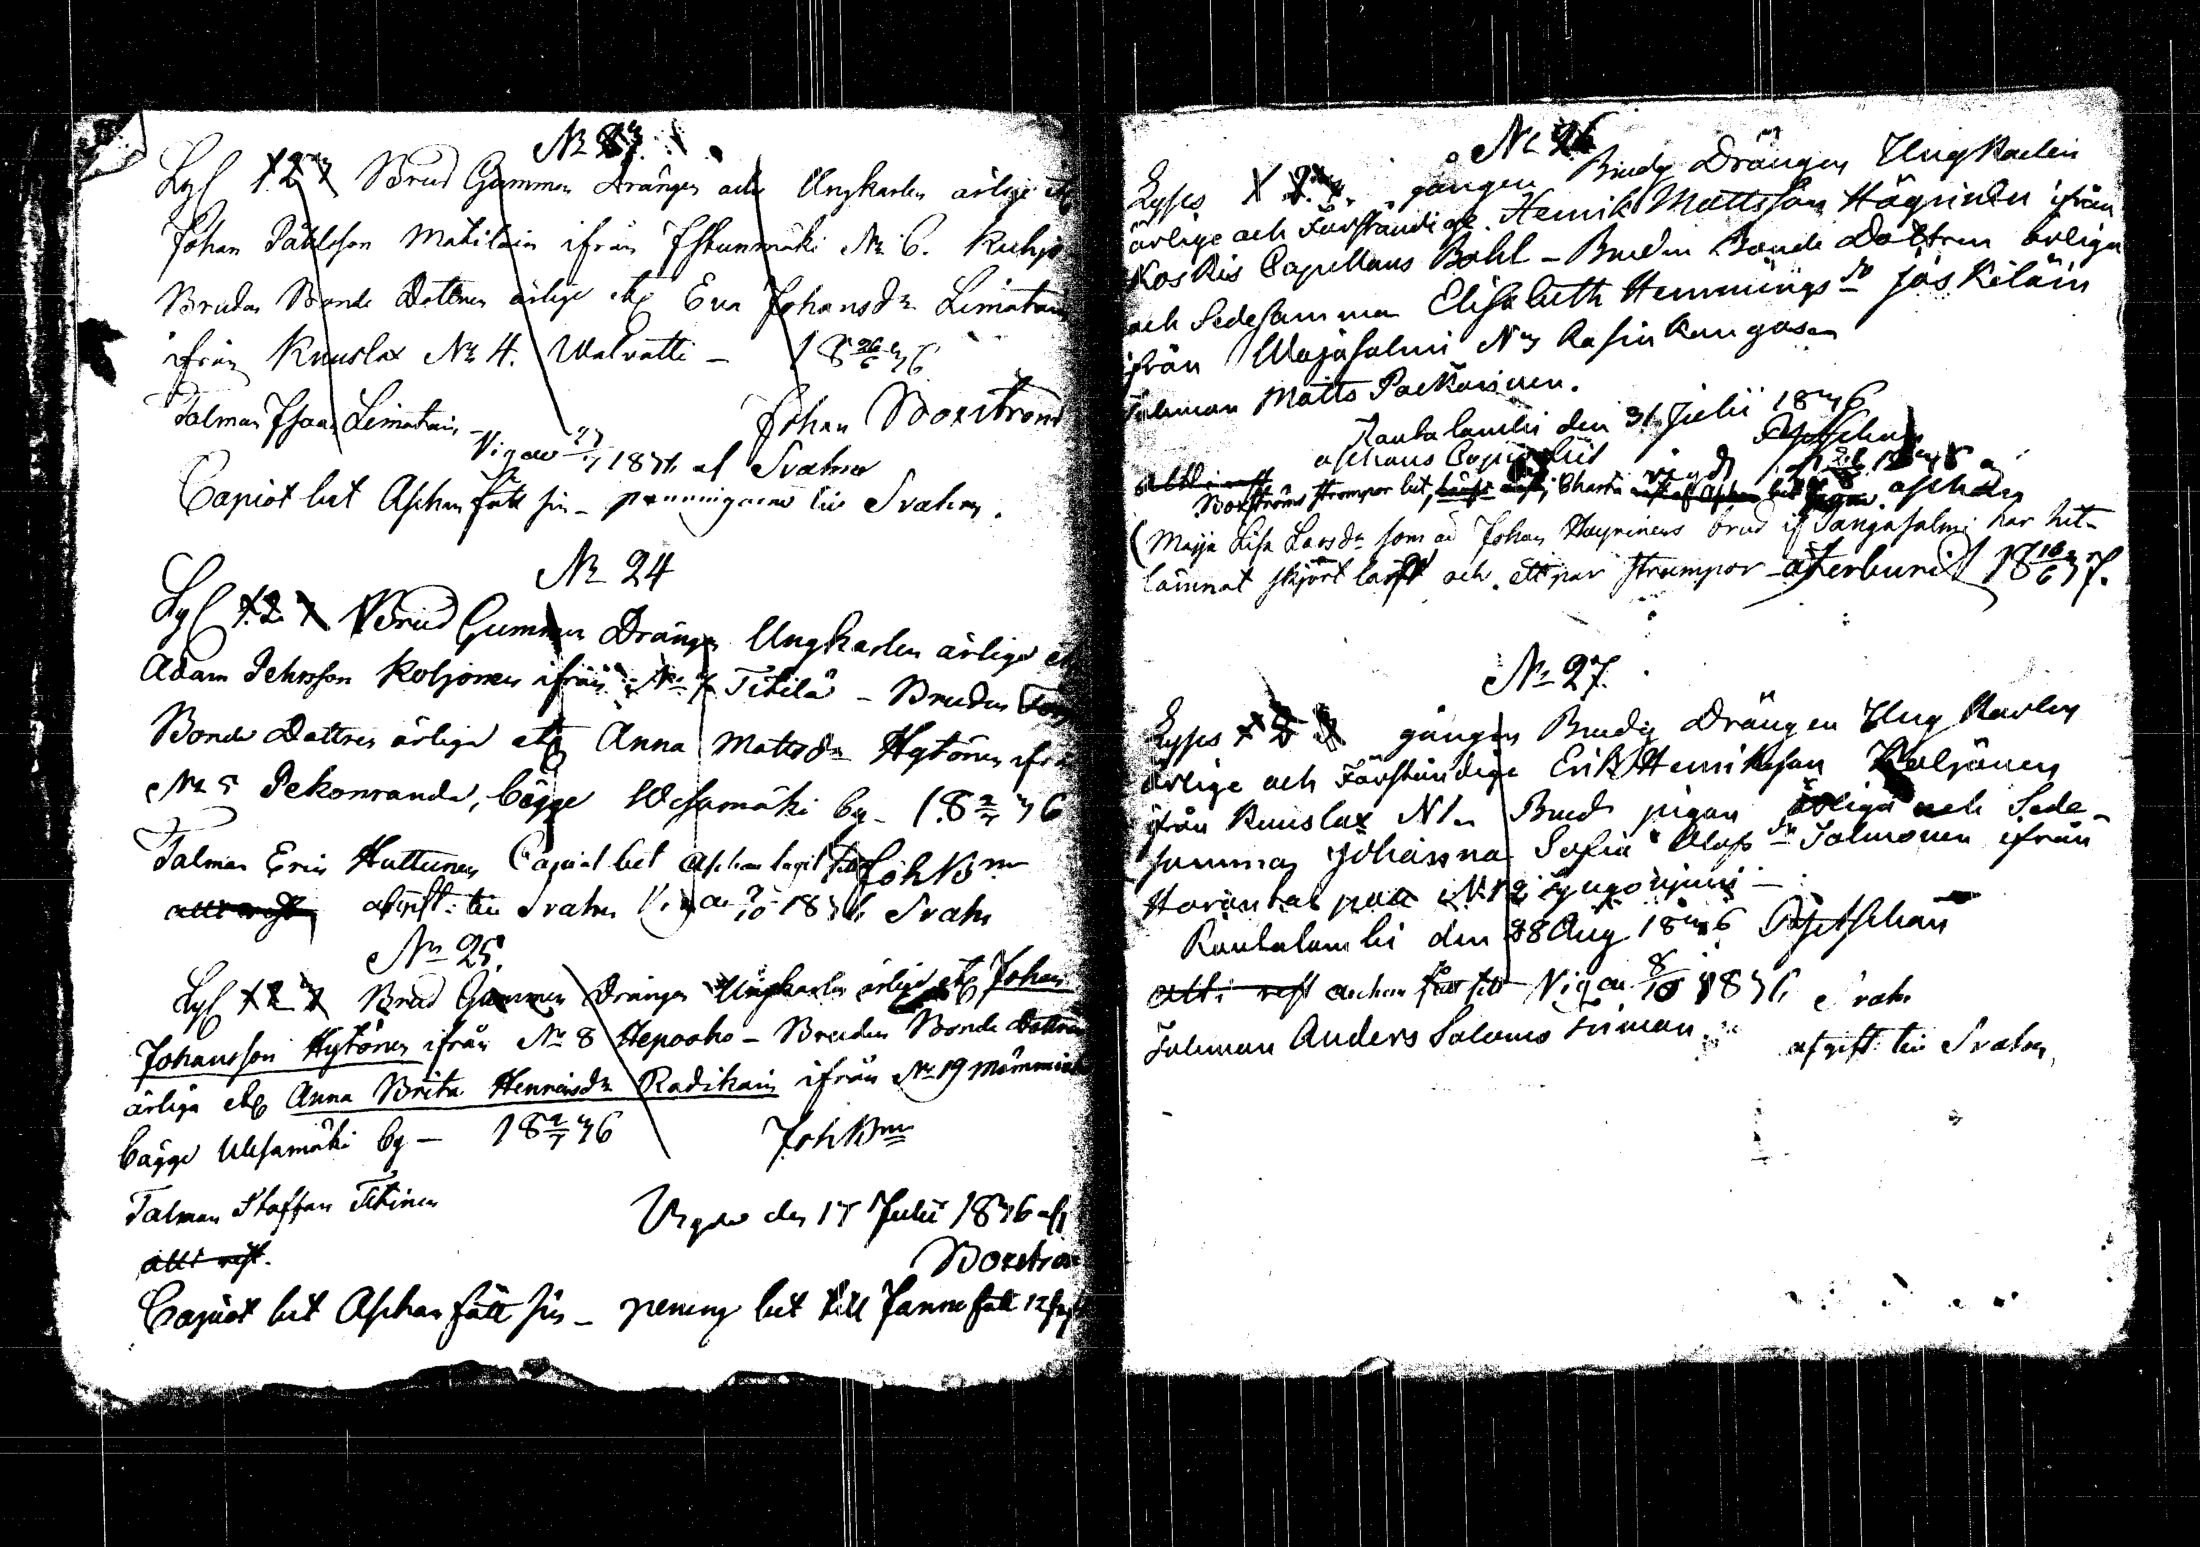 N:o 23
Lys 1. 2. 3 Brud Gummen Drängen och Ungkarlen ärlige etc
Johan Påhlsson Matilain ifrån Ishunmäki N:o 6.
Bruden Bonde Dottren ärlige etc Eva Johansd:r Limatain
ifrån Knuslax N:o 4. Walvatti – 18 26/6 36
Talman Isaac Limatain –
Johan Boxström
Vigde 1836 af Svahn
Capiot bet Aschan fått sin – penningarne till Svahn.
N:o 24
Lys 1. 2. 3 Brud Gummen Drängen Ungkarlen ärlige etc
Adam Pehrsson Koljonen ifrån N:o 7 Titilä – Bruden
Bonde Dottren ärliga etc Anna Mattsd:r Hytönen ifrån
N:o 5 Pekonranda, bägge Wesamäki by – 18 2/7 36
Talman Eric Huttunen Capiot bet Aschan tagit Joh B:m
allt rest afgift: till Svahn Vigde 1836 Svahn
N:o 25.
Lys 1 2 3 Brud Gummen Drängen Ungkarlen ärlige etc Johan
Johansson Hytönen ifrån N:o 8 Hepoaho – Bruden Bonde Dottren
ärliga etc Anna Brita Henricsd:r Radikain ifrån N:o 19
bägge Wesamäki by – 18 2/7 36
Joh B:m
Talman Staffan Titinen
Vigde den 17 Julii 1836 af
allt rest.
Boxström
Capiot bet Aschan fått sin – pening bet till Janne fått 12
N:o 26
Lyses 1 2. 3. gången Brudg Drängen Ungkarlen
ärlige och Förståndige Henrik Mattsson Häyrinen ifrån
Koskis Capellans Bohl – Bruden Bonde Dottren ärliga
och Sedesamma Elisabeth Hemmings d:r Jäskiläin
ifrån Wajasalmi N:o 3 Rasinkangas
Talman Matts Packarinen.
Rautalambi den 31 Julii 1836
Aschans Capiot bet
allt i rest
Boxströms strumpor bet,
(Maija Lisa Larsd:r som är Johan Häyrinens brud if Tangasalmi har hit-
lämnat skjort larft och ett par strumpor – återburit 18 18/6 37.
N:o 27.
Lyses 1 2 3 gången Brudg Drängen Ung Karlen
ärlige och Förståndige Erik Henriksson Koljonen
ifrån Knuslax N 1. Brud pigan ärliga och Sede-
samma Johanna Sofia Olofs d:r Salmonen ifrån
N 12
Rautalambi den 28 Aug 1836 Aschan
allt i rest Aschan fått sitt Vigde 8/10 1836 Svahn
Talman Anders Salomo Liiman
afgift till Svahn